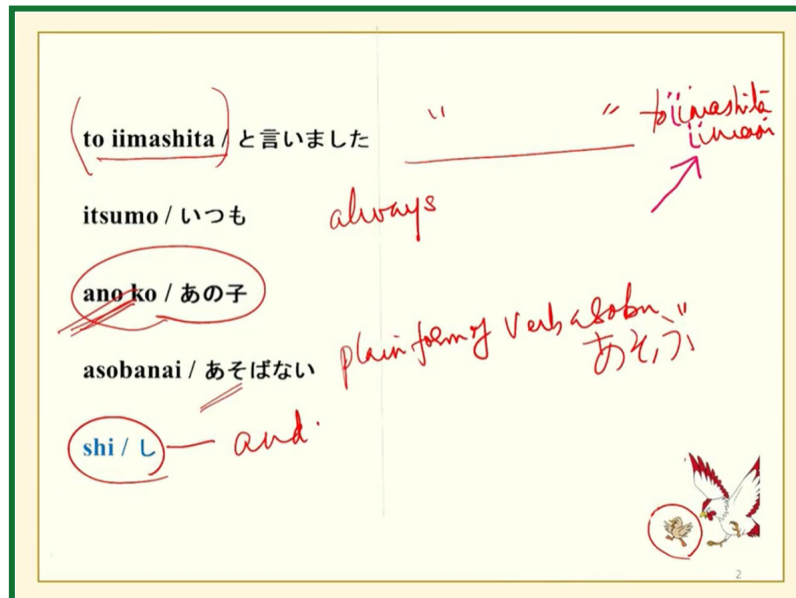 to iimashita / と言いました " " toiimashita
iimasu
itsumo / いつも always
ano ko / あの子
asobanai / あそばない plain form of Verb asobu
あそぶ
shi / し — and.
2